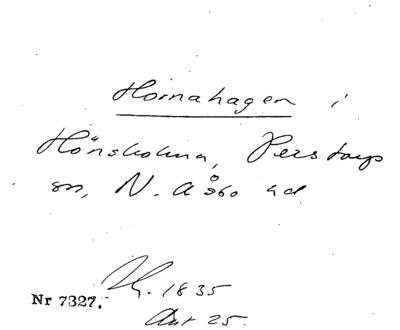 Hornahagen i
Hönsholma, Perstorps
sn, N. Åsbo hd
Nr 7327. 1835
Akt 25.